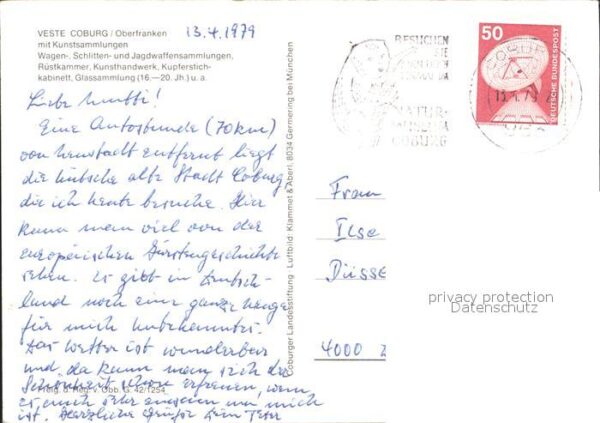 VESTE COBURG / Oberfranken
mit Kunstsammlungen
Wagen-, Schlitten- und Jagdwaffensammlungen,
Rüstkammer, Kunsthandwerk, Kupferstich-
kabinett, Glassammlung (16.—20. Jh.) u. a.
13.4.1979
Liebe Mutti!
Eine Autostunde (70 km)
von Neustadt entfernt liegt
die hübsche alte Stadt Coburg,
die ich heute besuche. Hier
kann man viel von der
europäischen Fürstengeschichte
sehen. Es gibt in Deutsch-
land noch eine ganze Menge
für mich Unbekanntes.
Das Wetter ist wunderbar
und da kann man sich der
Schönheit schon erfreuen, wenn
es auch sehr einsam um mich
ist. Herzliche Grüße Dein Peter
Freig. d. Reg. v. Obb. G. 42/1254
Coburger Landesstiftung Luftbild: Klammet & Aberl, 8034 Germering bei München
BESUCHEN
SIE
NATUR-
MUSEUM
COBURG
50
DEUTSCHE BUNDESPOST
COBURG
Frau
Ilse
Düsse
4000
privacy protection
Datenschutz